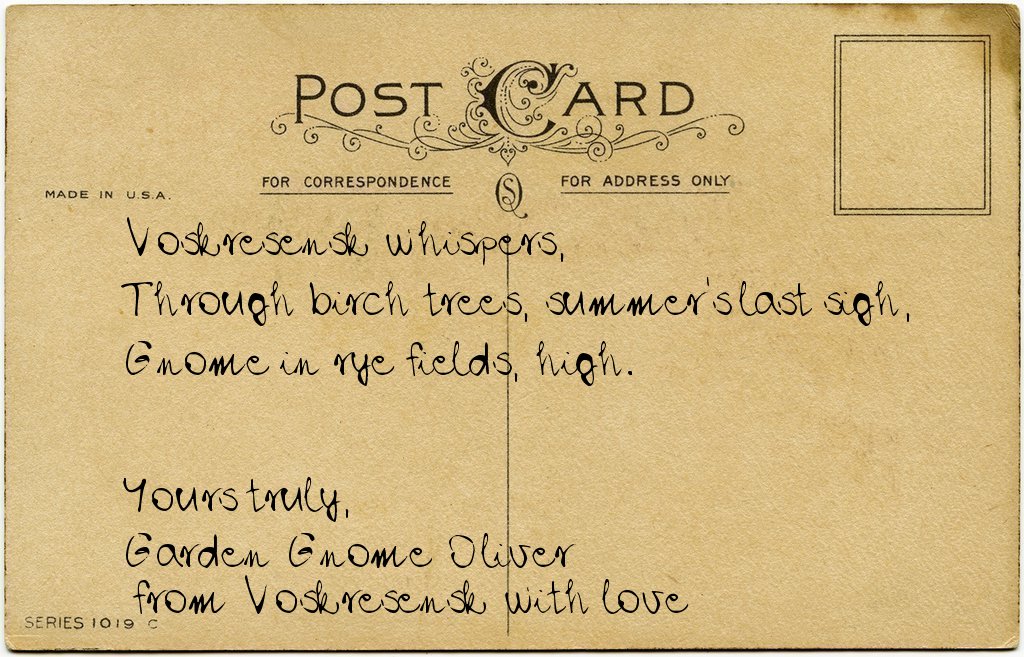 POST CARD
FOR CORRESPONDENCE
FOR ADDRESS ONLY
MADE IN U.S.A.
Voskresensk whispers,
Through birch trees, summer's last sigh,
Gnome in rye fields, high.
Yours truly,
Garden Gnome Oliver
from Voskresensk with love
SERIES 1019 C